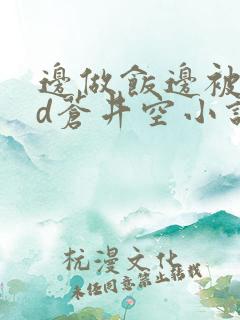 邊做飯邊被
d蒼井空小說
杭漫文化
未经同意禁止转载